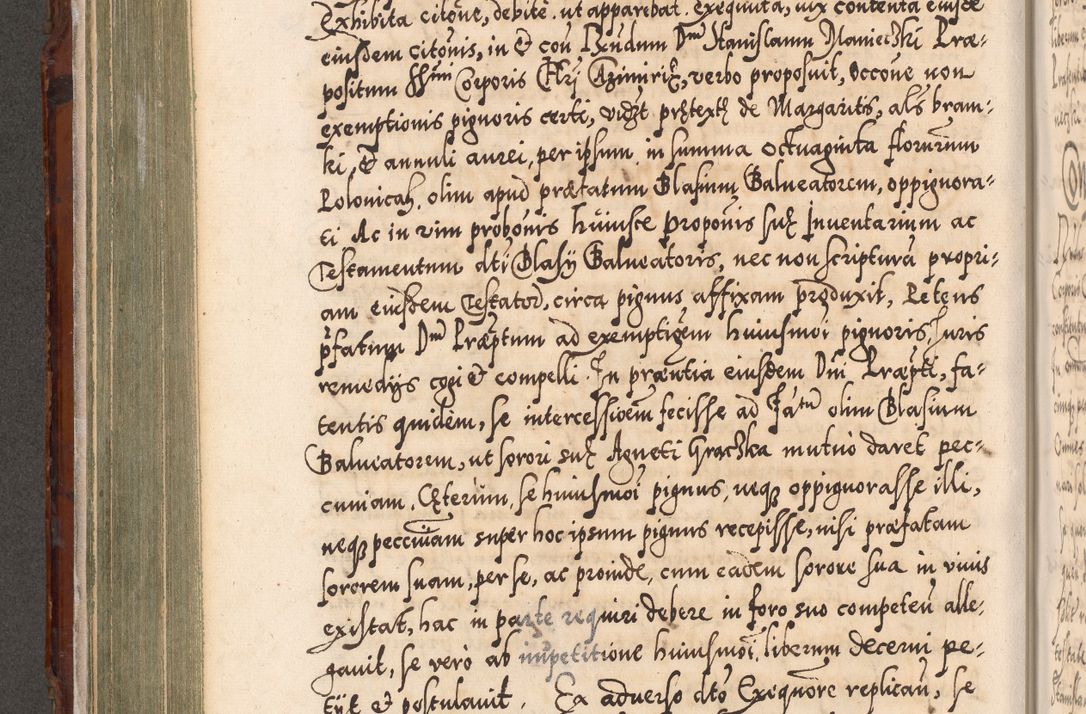 Exhibita citõne, debitè. ut apparebat. exequuta, iux contenta eiusde
eiusdem citõnis, in et cõu Rẽndum Dnũ Stanislaum Maniecżki Præ-
positum SSmi Corporis Chri Cazimiriæ, verbo proposuit, occõne non
exemptionis pignoris certi, vidzt prętextę de Margaritis, als bram-
ki, et annuli aurei, per ipsum in summa octuaginta florũrum
Polonicalz. olim apud prætatum Blasium Balneatorem, oppignora-
ti Ac in vim probõnis huiusce propõnis suæ Inventarium ac
Testamentum dti Blasij Balneatoris, nec non scripturã propri-
am eiusdem Testator, circa pignus affixam produxit, Petens
pfatum Dnũ Præptum ad exemptiõem huiusmõi pignoris, Iuris
remedijs cogi et compelli. In præntia eiusdem Dni Præpti, fa-
tentis quidèm, se intercessiõem fecisse ad Fatũ olim Blasium
Balneatorem, ut sorori suæ Agneti Gracżka mutuò daret pec-
cuniam. Cęterùm, se huiusmõi pignus, neq3 oppignorasse illi,
neq3 pecciuam super hoc ipsum pignus recepisse, nisi præfatam
sororem suam, per se, ac proinde, cum eadem sorore sua in vivis
existat, hac in parte requiri debere in foro suo competeñ alle-
gavit, se verò ab impetitione huiusmõi, liberum decerni pe-
tijt et postulavit. Ex adverso dto Exequõre replicañ, se